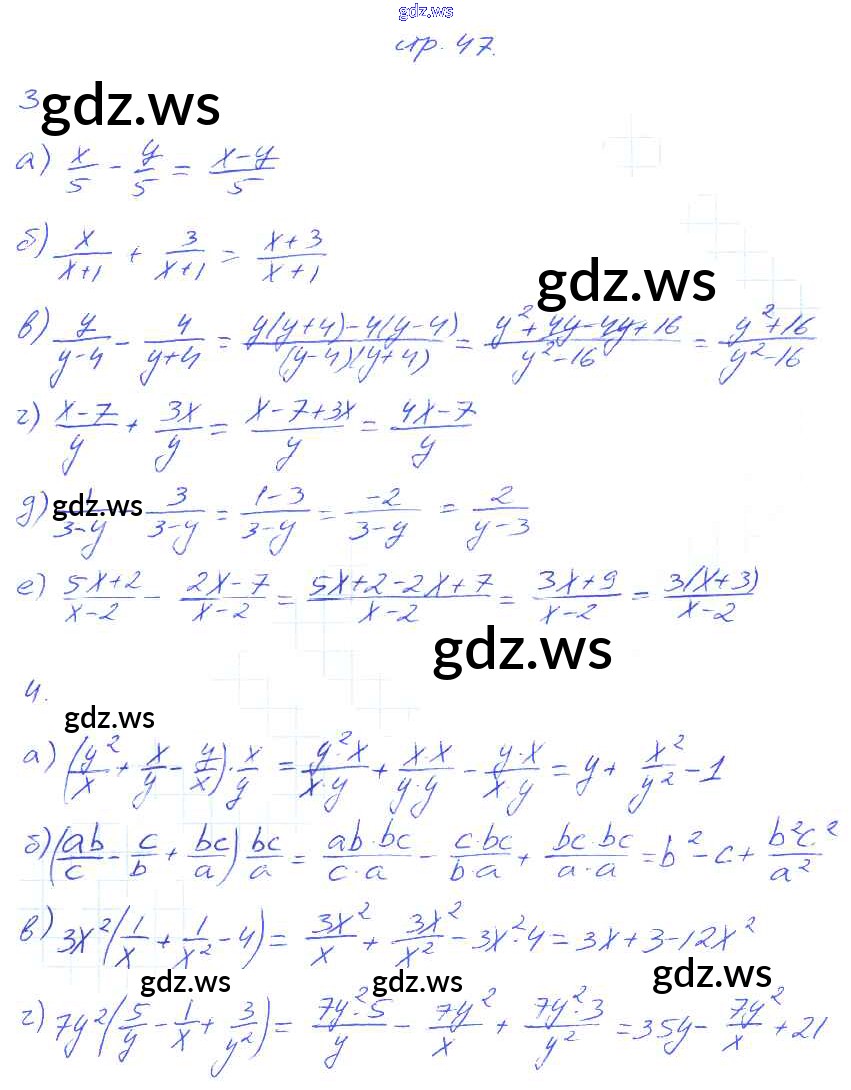 gdz.ws
стр. 47.
3 gdz.ws
а) x/5 - y/5 = x-y/5
б) x/x+1 + 3/x+1 = x+3/x+1
gdz.ws
в) y/y-4 - 4/y+4 = y(y+4)-4(y-4)/(y-4)(y+4) = y²+4y-4y+16/y²-16 = y²+16/y²-16
г) x-7/y + 3x/y = x-7+3x/y = 4x-7/y
д) 1/3-y gdz.ws 3/3-y = 1-3/3-y = -2/3-y = 2/y-3
е) 5x+2/x-2 - 2x-7/x-2 = 5x+2-2x+7/x-2 = 3x+9/x-2 = 3(x+3)/x-2
gdz.ws
4.
gdz.ws
а) (y²/x + x/y - y/x)·x/y = y²·x/x·y + x·x/y·y - y·x/x·y = y + x²/y² - 1
б) (ab/c - c/b + bc/a) bc/a = ab·bc/c·a - c·bc/b·a + bc·bc/a·a = b² - c + b²c²/a²
в) 3x²(1/x + 1/x² - 4) = 3x²/x + 3x²/x² - 3x²·4 = 3x+3-12x²
gdz.ws gdz.ws gdz.ws
г) 7y²(5/y - 1/x + 3/y²) = 7y²·5/y - 7y²/x + 7y²·3/y² = 35y - 7y²/x + 21